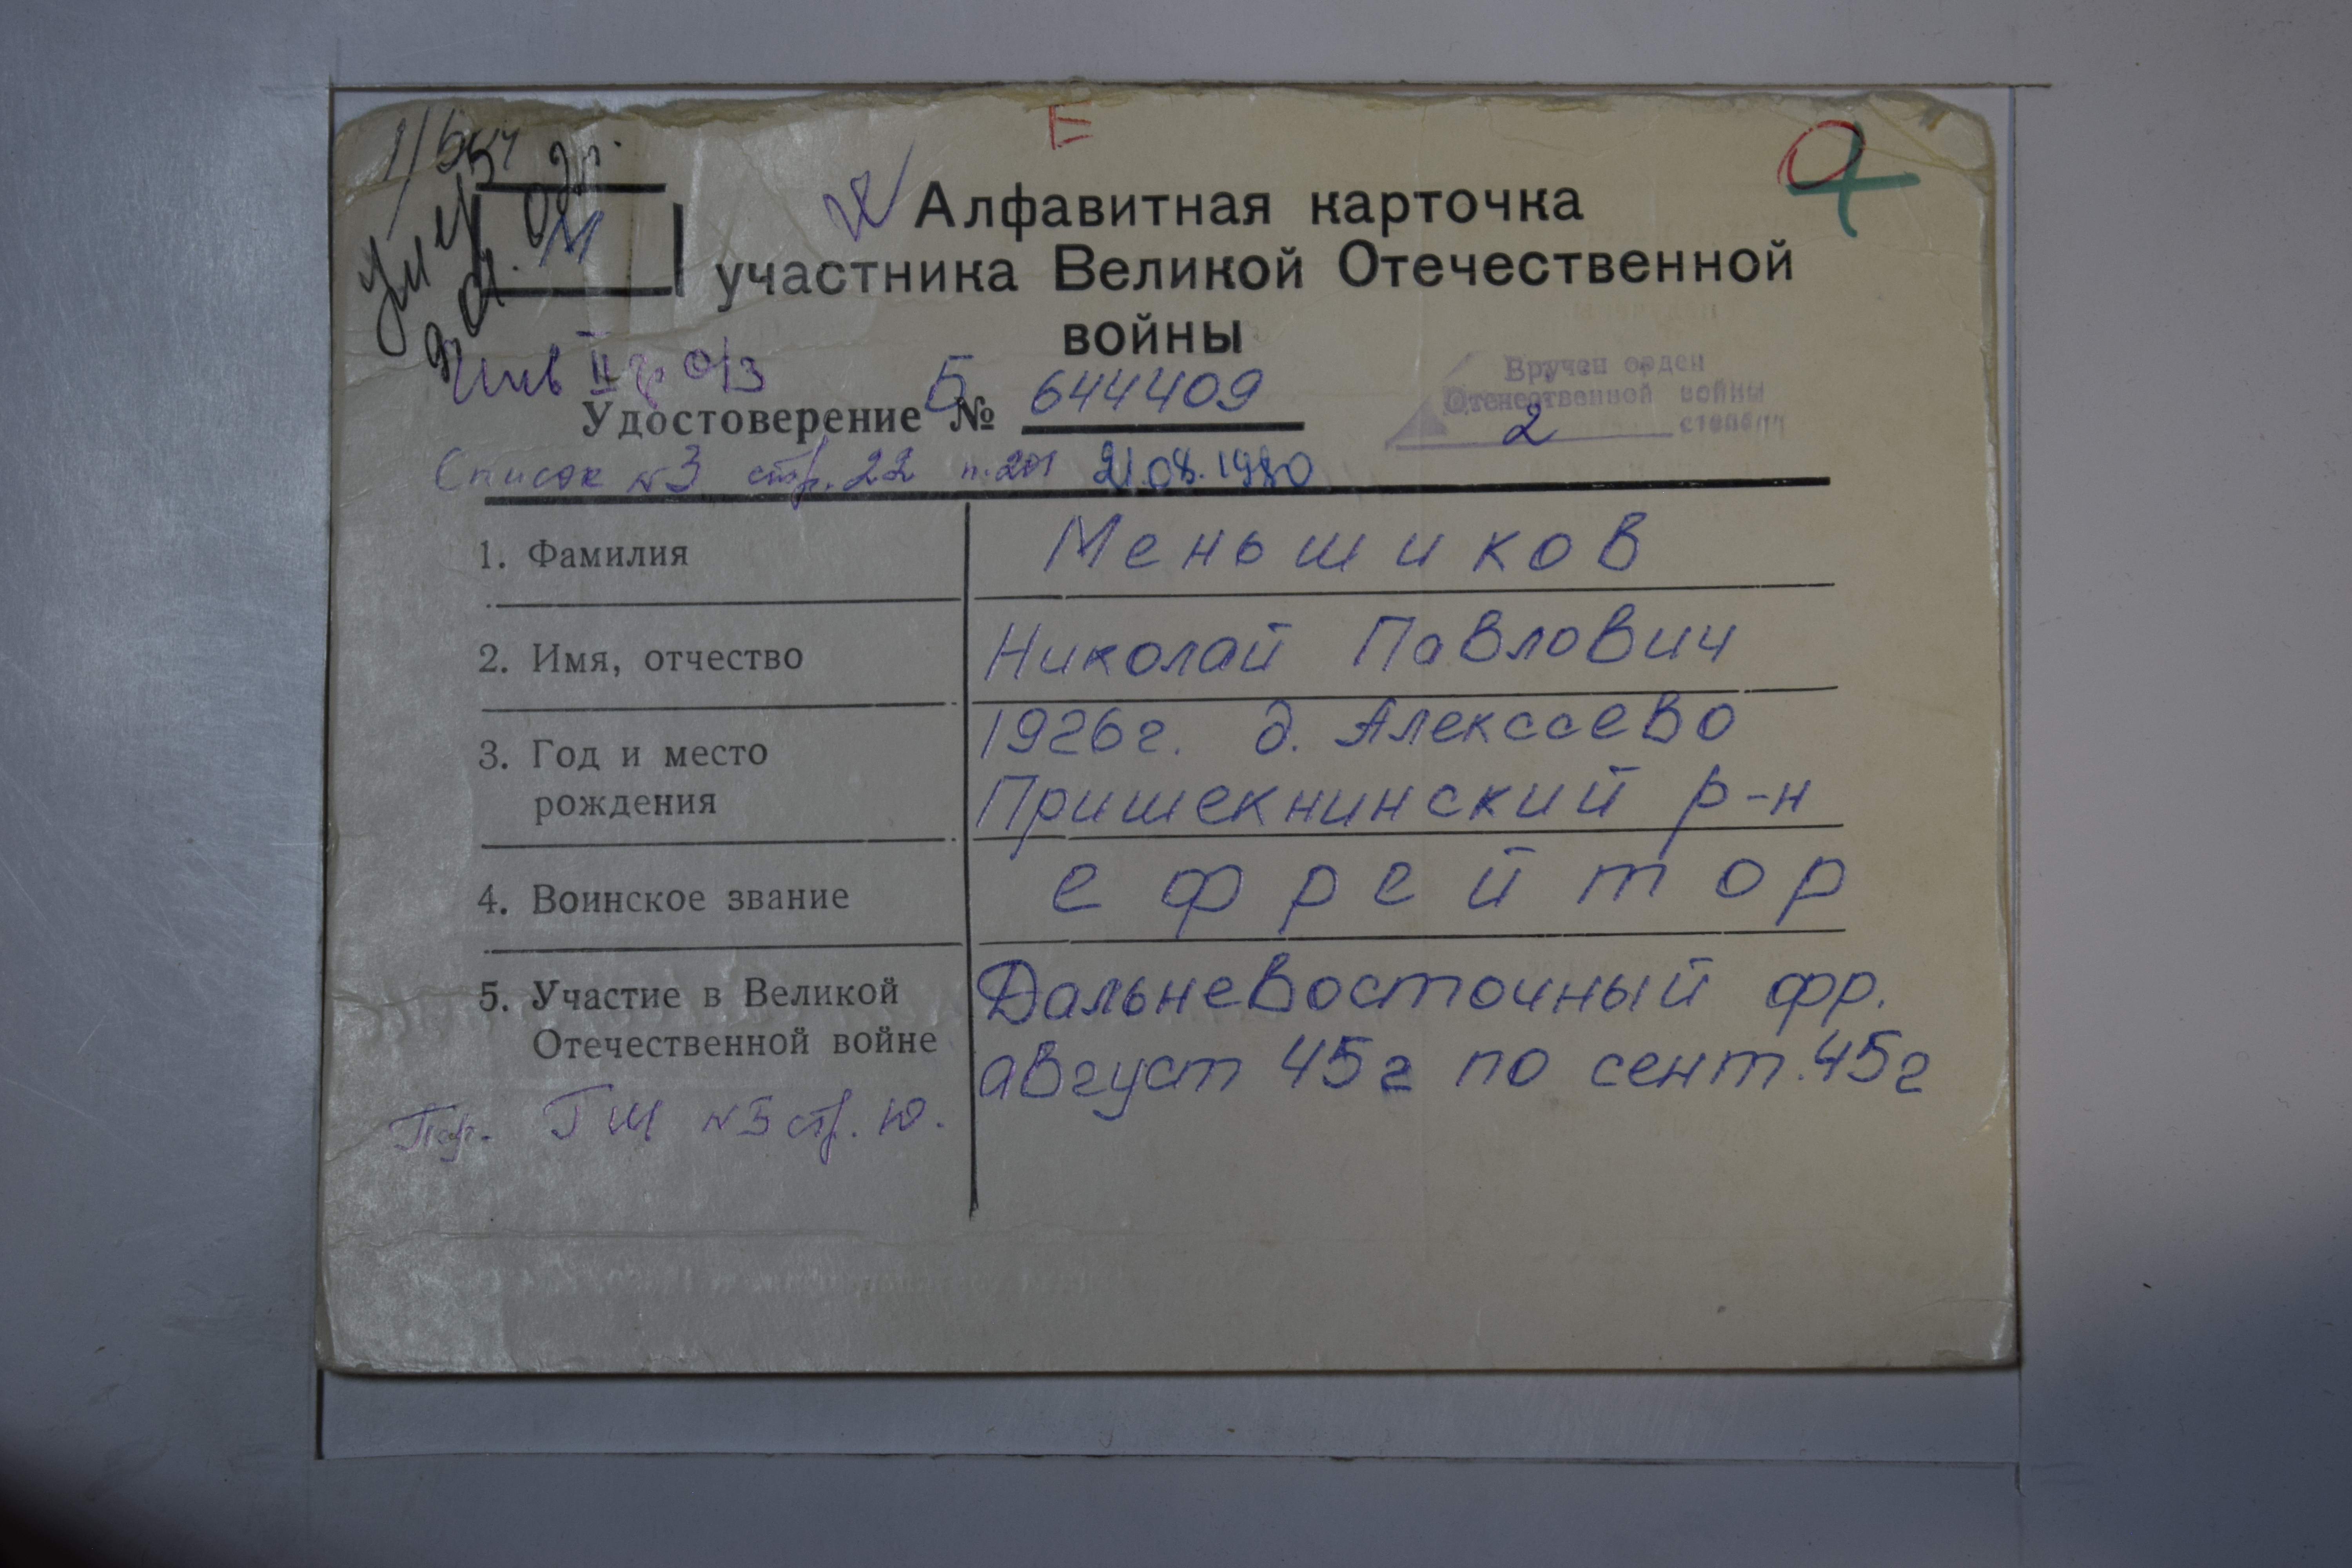 Е
М
Алфавитная карточка
участника Великой Отечественной
войны
Инв II гр о/з
Вручен орден
Отечественной войны
2 степени
Удостоверение Б № 644409
Список №3 стр. 22 п. 201 21.08.1980
1. Фамилия Меньшиков
2. Имя, отчество Николай Павлович
3. Год и место 1926г. д. Алексеево
рождения Пришекнинский р-н
4. Воинское звание ефрейтор
5. Участие в Великой Дальневосточный фр.
Отечественной войне август 45г по сент. 45г
ГШ №3 стр. 10.